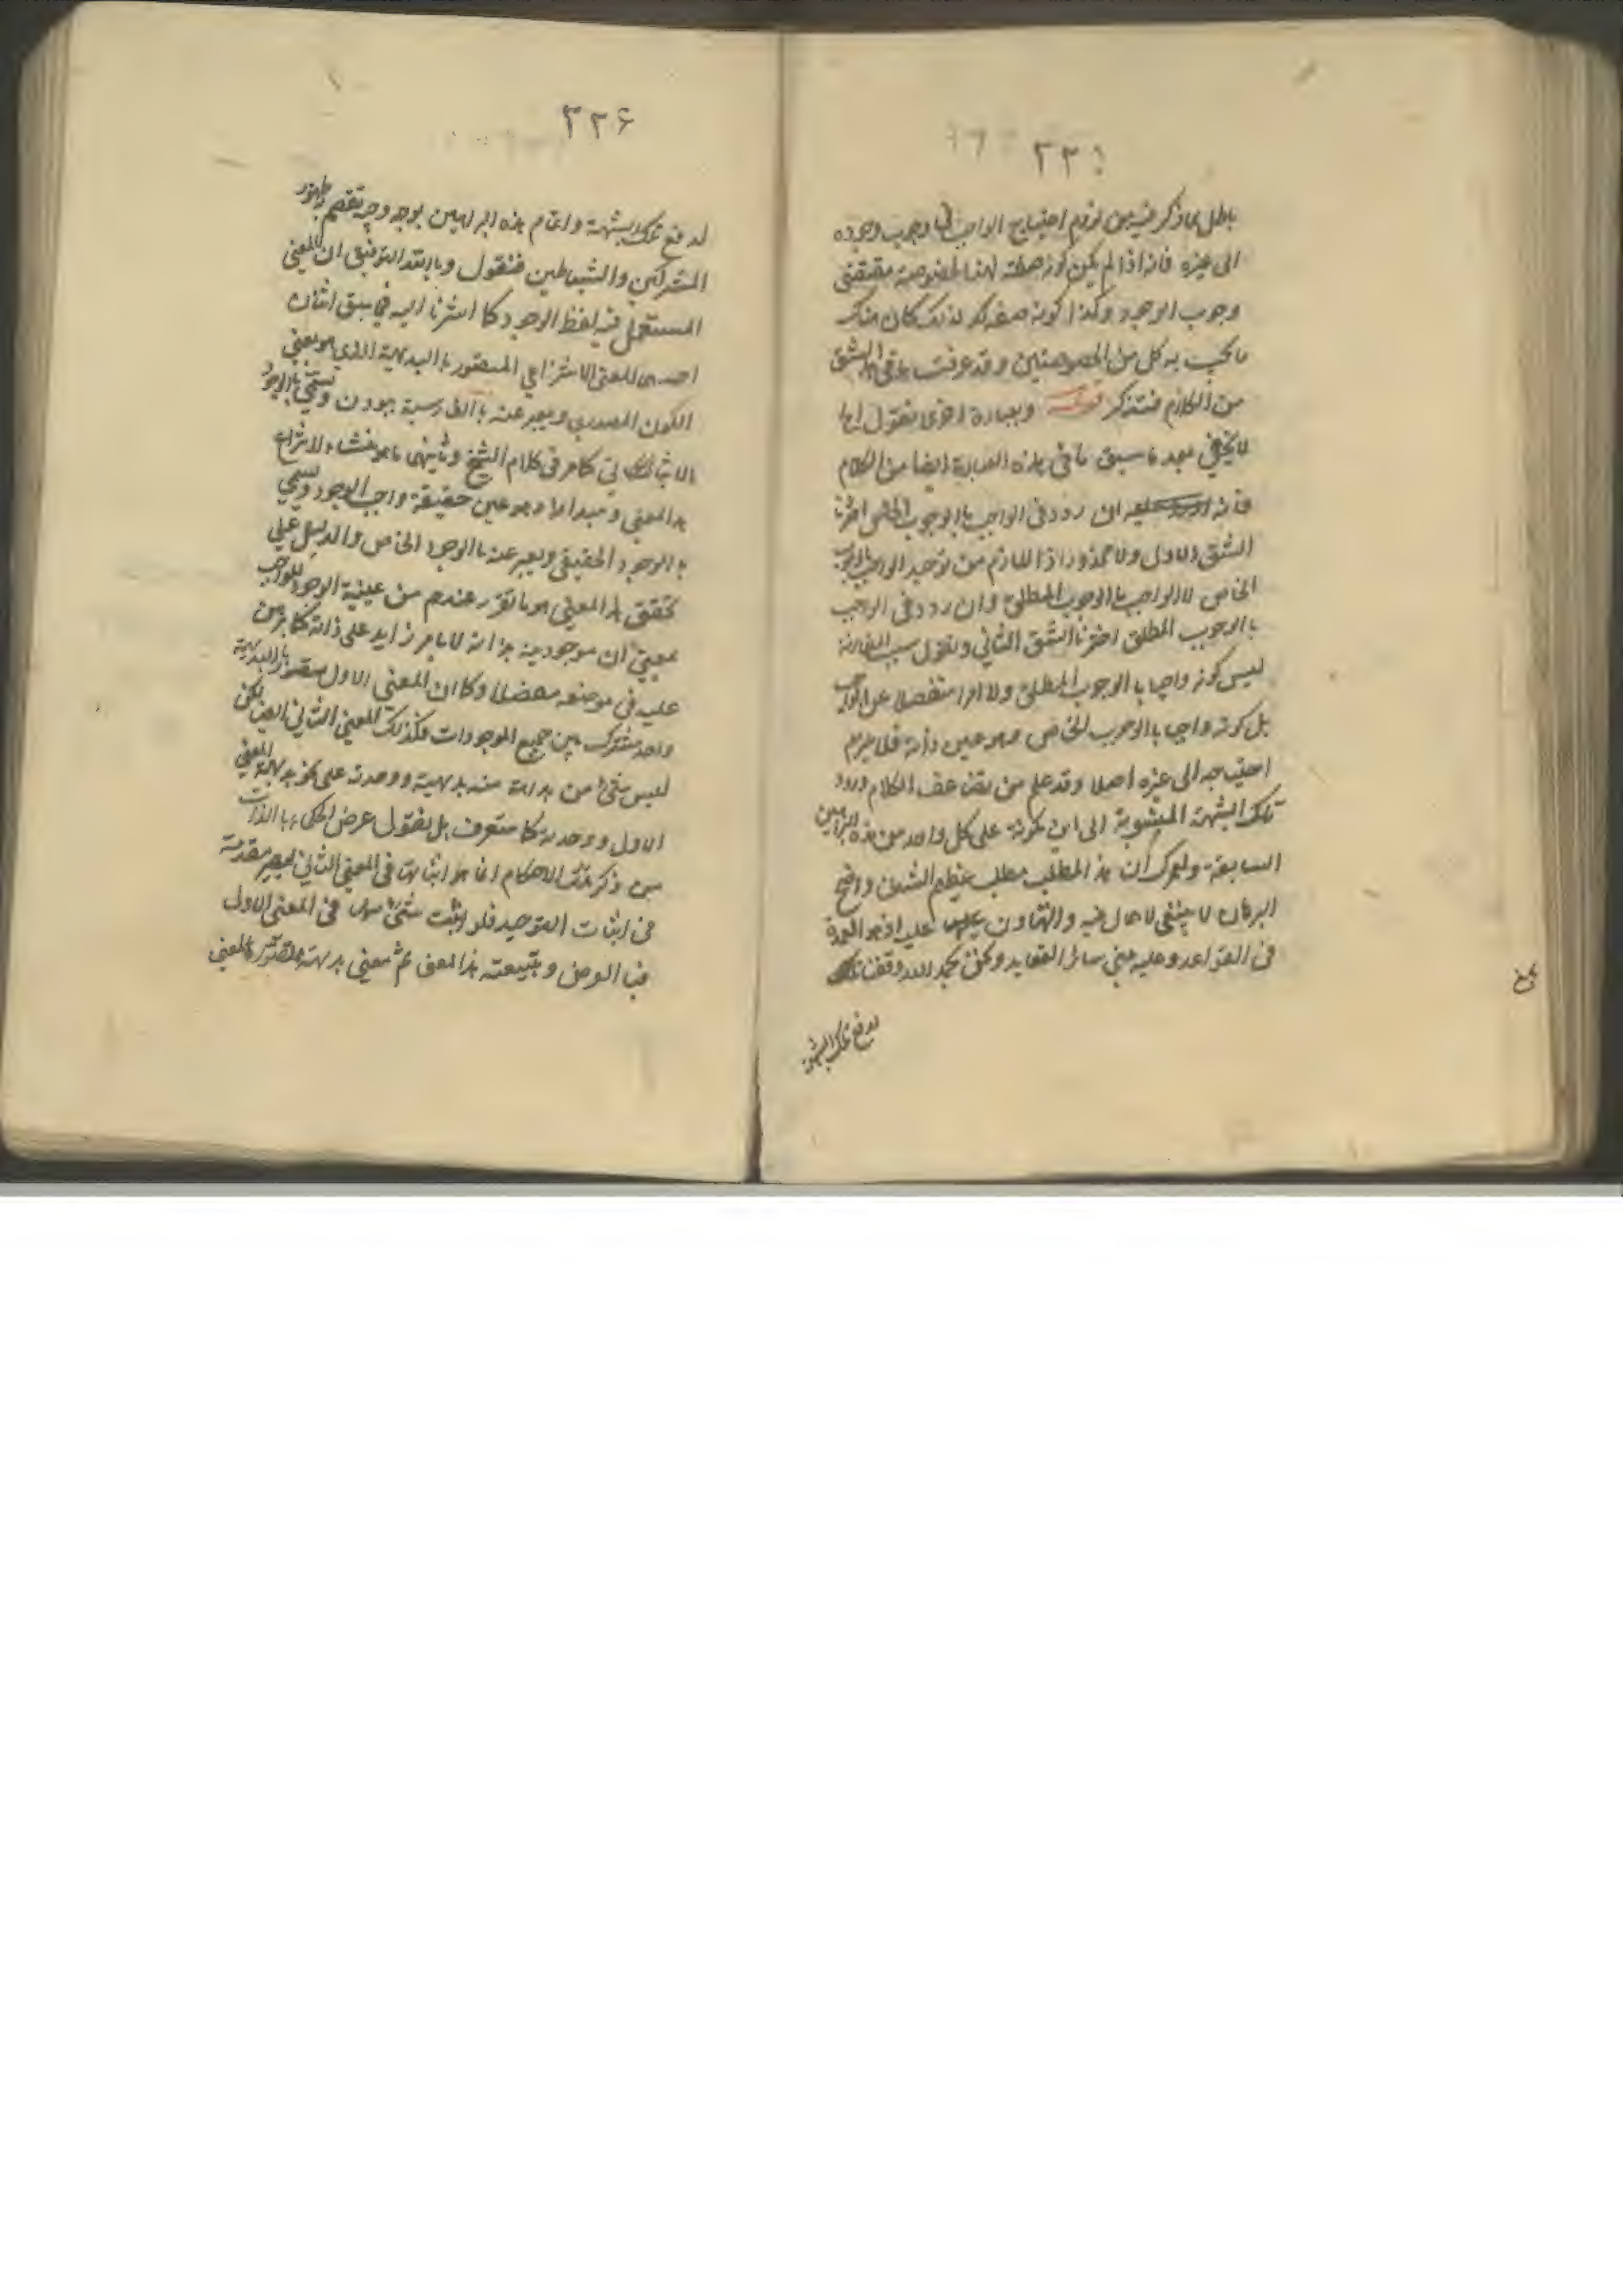 باطل بما ذكر فيه من لزوم احتياج الواجب في وجوب وجوده
الى غيره فانه اذا لم يكن كونه صفة لهذا الخصوصية مقتضى
وجوب الوجود وكذا كونه صفة لذلك كان هناك
ما يجب به كل من الخصوصيتين وقد عرفت ما في هذا الشق
من الكلام فتذكر قوله وبعبارة اخرى نقول
لا يخفى بعد ما سبق ما في هذه العبارة ايضا من الكلام
فانه ان ردد في الواجب بالوجوب الخاص اخترنا
الشق الاول ولا محذور اذ اللازم من توحيد الواجب بالوجوب
الخاص لا الواجب بالوجوب المطلق وان ردد في الواجب
بالوجوب المطلق اخترنا الشق الثاني ونقول سبب المقارنة
ليس كونه واجبا بالوجوب المطلق ولا امرا منفصلا عن الواجب
بل كونه واجبا بالوجوب الخاص وهو عين ذاته فلا يلزم
احتياجه الى غيره اصلا وقد علم من تضاعيف الكلام ورود
تلك الشبهة المنسوبة الى ابن كمونة على كل واحد من هذه البراهين
السابقة ولعمرك ان هذا المطلب مطلب عظيم الشان واضح
البرهان لا ينبغي لاهمال فيه والتهاون عليه اذ هو العمدة
في القواعد وعليه مبنى سائر العقايد ونحن بحمد الله وفقنا
لدفع تلك الشبهة
٣٢۶
لدفع تلك الشبهة واتمام هذه البراهين بوجه وجيه تقصم ظهور
المشركين والشياطين فنقول وبالله التوفيق ان المعنى
المستعمل فيه لفظ الوجود كما اشرنا اليه فيما سبق اثنان
احدهما المعنى الانتزاعي المتصور بالبديهة الذي هو بمعنى
الكون المصدري ويعبر عنه بالفارسية ببودن ويسمى بالوجود
الاثباتي كما مر في كلام الشيخ وثانيهما ما هو منشاء لانتزاع
هذا المعنى ومبداء له وهو عين حقيقة واجب الوجود ويسمى
بالوجود الحقيقي ويعبر عنه بالوجود الخاص والدليل على
تحقق هذا المعنى هو ما تقرر عندهم من عينية الوجود للواجب
بمعنى ان موجوديته بذاته لا بامر زايد على ذاته كما برهن
عليه في موضعه مفصلا وكما ان المعنى الاول متصور بالبديهة
واحد مشترك بين جميع الموجودات فكذلك المعنى الثاني ايضا لكن
ليس شئ من بداهة منه بديهية ووحدته على نحو بداهة المعنى
الاول ووحدته كما ستعرف بل نقول غرض الحكماء بالذات
من ذكر هذه الاحكام انما هو اثباتها في المعنى الثاني ليصير مقدمة
في اثبات التوحيد فلو اثبت شئ منها في المعنى الاول
فبالعرض وبتبعيته هذا المعنى ثم معنى بديهته تصور المعنى